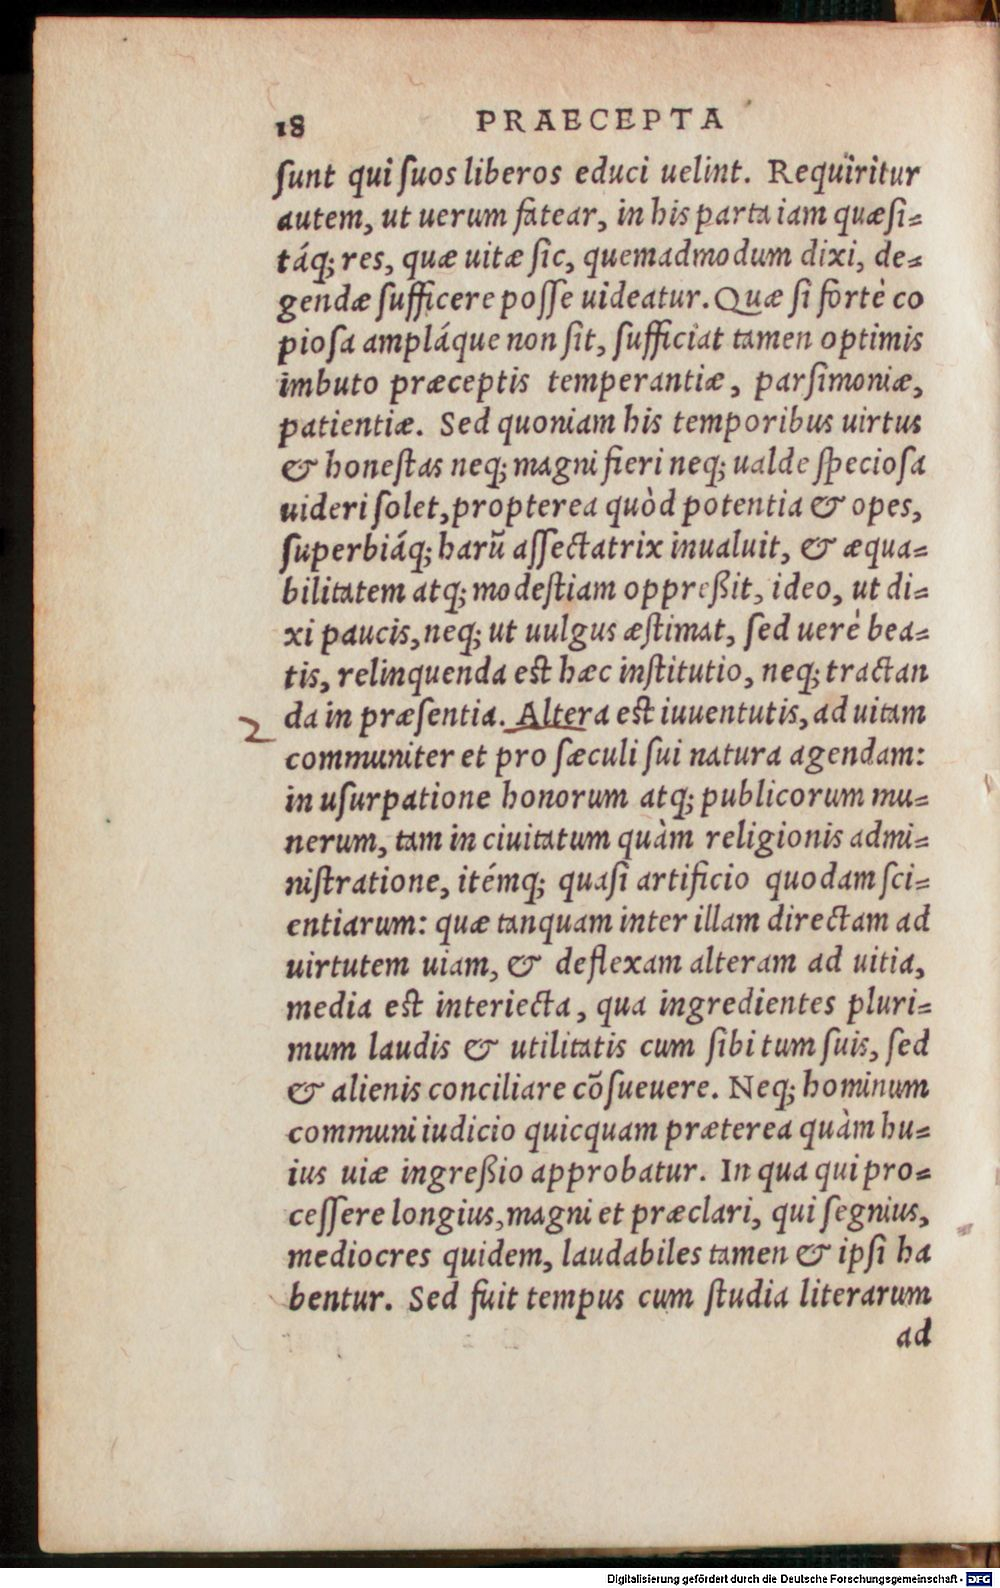 18 PRAECEPTA
ſunt qui ſuos liberos educi uelint. Requiritur
autem, ut uerum fatear, in his parta iam quæſi⸗
táq; res, quæ uitæ ſic, quemadmodum dixi, de⸗
gendæ ſufficere poſſe uideatur. Quæ ſi fortè co
pioſa ampláque non ſit, ſufficiat tamen optimis
imbuto præceptis temperantiæ, parſimoniæ,
patientiæ. Sed quoniam his temporibus uirtus
& honeſtas neq; magni fieri neq; ualde ſpecioſa
uideri ſolet, propterea quòd potentia & opes,
ſuperbiáq; harũ aſſectatrix inualuit, & æqua⸗
bilitatem atq; modeſtiam oppreßit, ideo, ut di⸗
xi paucis, neq; ut uulgus æſtimat, ſed uerè bea⸗
tis, relinquenda eſt hæc inſtitutio, neq; tractan
2 da in præſentia. Altera eſt iuuentutis, ad uitam
communiter et pro ſæculi ſui natura agendam:
in uſurpatione honorum atq; publicorum mu⸗
nerum, tam in ciuitatum quàm religionis admi⸗
niſtratione, itémq; quaſi artificio quodam ſci⸗
entiarum: quæ tanquam inter illam directam ad
uirtutem uiam, & deflexam alteram ad uitia,
media eſt interiecta, qua ingredientes pluri⸗
mum laudis & utilitatis cum ſibi tum ſuis, ſed
& alienis conciliare cõſueuere. Neq; hominum
communi iudicio quicquam præterea quàm hu⸗
ius uiæ ingreßio approbatur. In qua qui pro⸗
ceſſere longius, magni et præclari, qui ſegnius,
mediocres quidem, laudabiles tamen & ipſi ha
bentur. Sed fuit tempus cum ſtudia literarum
ad
Digitalisierung gefördert durch die Deutsche Forschungsgemeinschaft - DFG